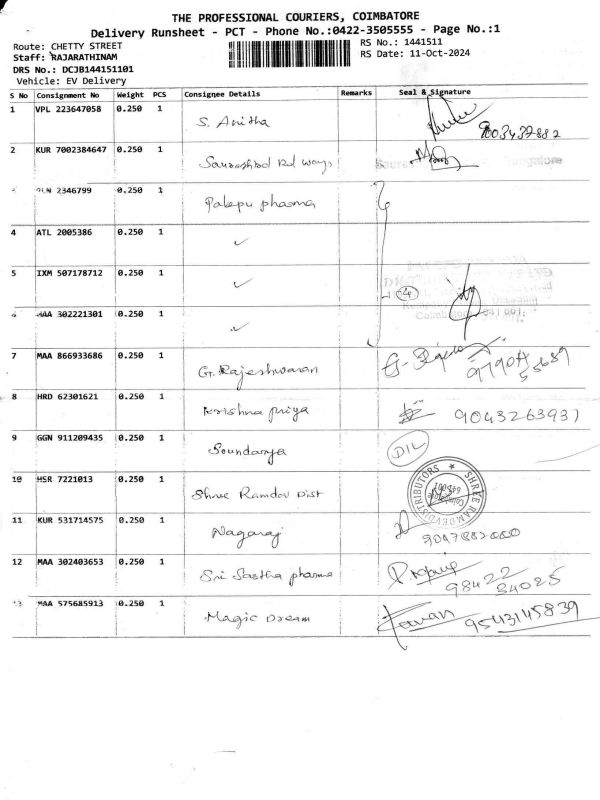 THE PROFESSIONAL COURIERS, COIMBATORE
Delivery Runsheet - PCT - Phone No.:0422-3505555 - Page No.:1
Route: CHETTY STREET
RS No.: 1441511
Staff: RAJARATHINAM
RS Date: 11-Oct-2024
DRS No.: DCJB144151101
Vehicle: EV Delivery
S No Consignment No Weight PCS Consignee Details Remarks Seal & Signature
1 VPL 223647058 0.250 1 S. Anitha 9003437882
2 KUR 7002384647 0.250 1 Saurashtra Rd ways
2346799 0.250 1 Palepu pharma
4 ATL 2005386 0.250 1 ✓
5 IXM 507178712 0.250 1 ✓ 4
MAA 302221301 0.250 1 ✓
7 MAA 866933686 0.250 1 G. Rajeshwaran 97904 55689
8 HRD 62301621 0.250 1 Krishna priya 9043263931
9 GGN 911209435 0.250 1 Soundarya DIL
10 HSR 7221013 0.250 1 Shree Ramdev Dist SHREE RAMDEV DISTRIBUTORS
11 KUR 531714575 0.250 1 Nagaraj
12 MAA 302403653 0.250 1 Sri Sastha pharma 98422 34025
13 MAA 575685913 0.250 1 Magic Dream 9543145839